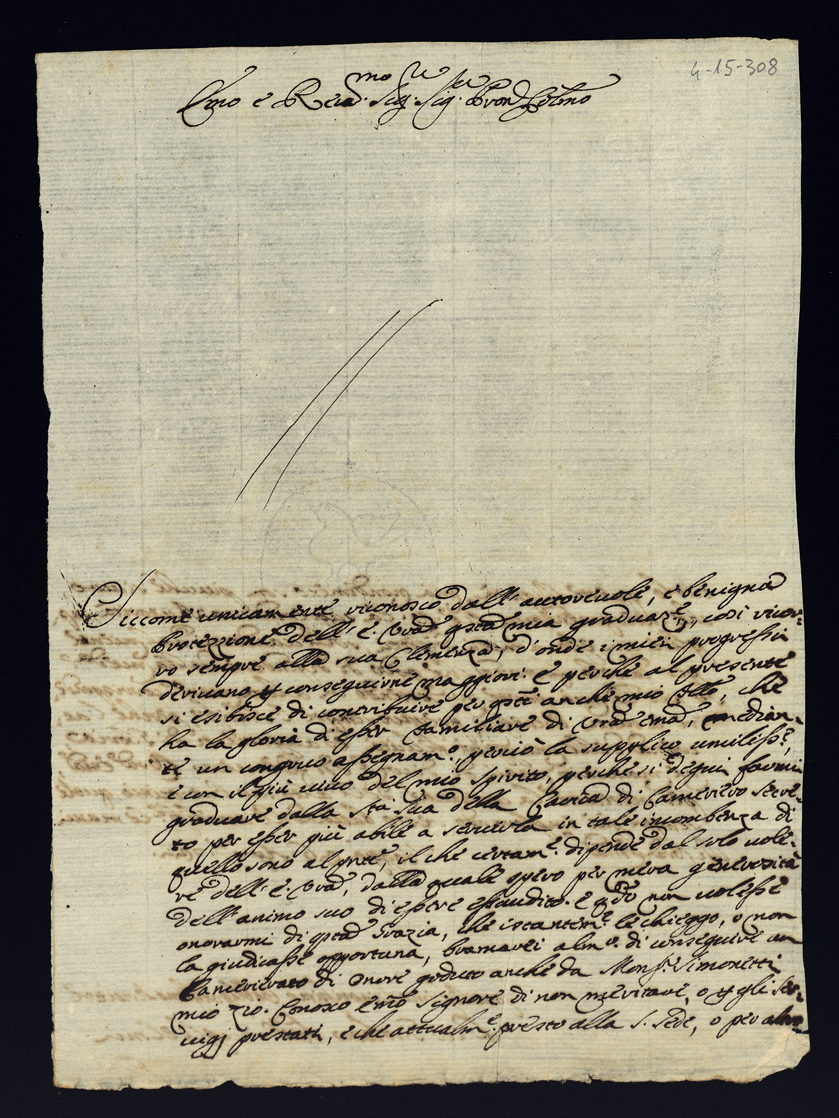 4-15-308
Emo e Revd.mo Sig.r Sig.r Pron Colmo
Siccome unicamente riconosco dall'autorevole, e benigna
Protezzione dell'E. Vra q.sta mia graduaz.e, così ricor-
ro sempre alla sua Clemenza, d'onde i miei progressi
derivano, p conseguirne maggiori. E perche al presente
si esibisce di contribuire per q.sti anche mio Fllo, che
ha la gloria di esser familiare di Vra Ema, median-
te un congruo assegnam.o, perciò la supplico umiliss.e,
e con il più vivo del mio spirito, perche si degni farmi
graduare dalla Sta Sua della Carica di Cameriero secre-
to per esser più abile a servirla in tale incombenza di
quello sono al pnte, il che certam.e dipende dal solo vole-
re dell'E. Vra, dalla quale spero per mera generosità
dell'animo suo di essere essaudito. E q.do non volesse
onorarmi di q.sta Grazia, che istantem.e le chieggo, o non
la giudicasse opportuna, bramarei alm.o di conseguire un
Camerierato di Onore goduto anche da Mons.r Simonetti
mio zio. Conosco Emo Signore di non meritare, o p gli ser-
vigj prestati, e che attualm.e presto alla S. Sede, o per altro